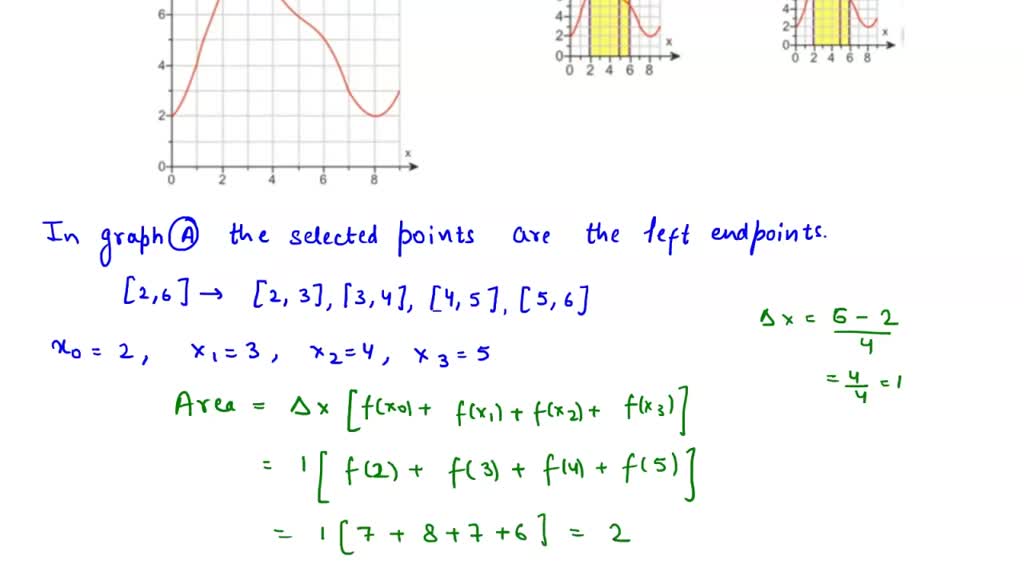 6
4
2
0
0 2 4 6 8
x
4
2
0
0 2 4 6 8
x
4
2
0
0 2 4 6 8
x
In graph Ⓐ the selected points are the left endpoints.
[2,6] → [2, 3], [3,4], [4,5], [5,6]
x₀ = 2, x₁ = 3, x₂ = 4, x₃ = 5
Δx = 6 - 2 / 4
= 4/4 = 1
Area = Δx [f(x₀) + f(x₁) + f(x₂) + f(x₃)]
= 1 [f(2) + f(3) + f(4) + f(5)]
= 1 [7 + 8 + 7 + 6] = 2